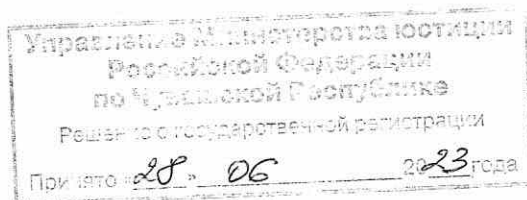 Управление Министерства юстиции
Российской Федерации
по Чувашской Республике
Решение о государственной регистрации
Принято «28» 06 2023 года